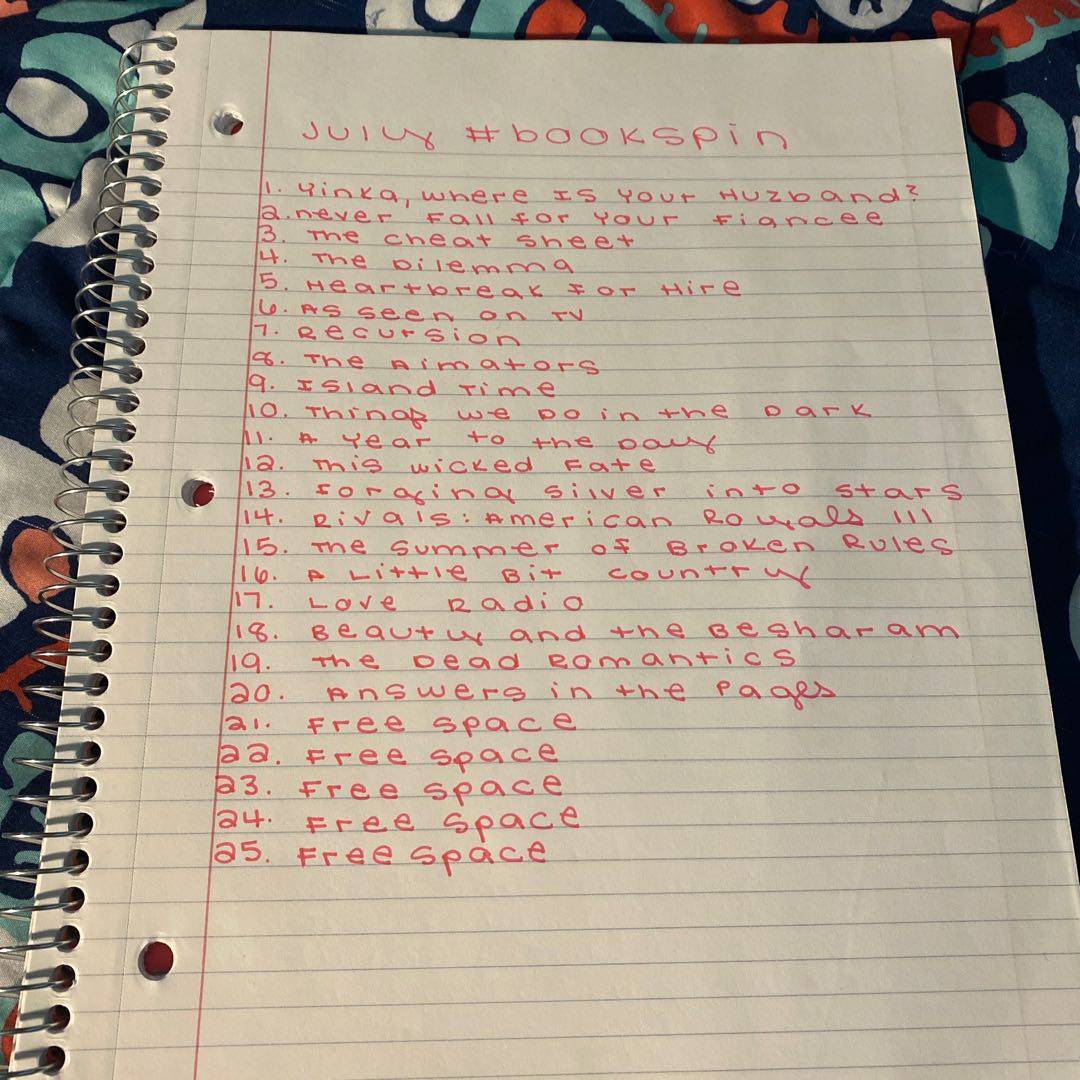 July #bookspin
1. Yinka, where Is Your Huzband?
2. never Fall for Your Fiancee
3. The Cheat Sheet
4. The Dilemma
5. Heartbreak For Hire
6. As Seen on TV
7. Recursion
8. The Aimators
9. Island Time
10. Things We Do in the Dark
11. A Year to the Day
12. This Wicked Fate
13. Forging Silver into Stars
14. Rivals: American Royals III
15. The Summer of Broken Rules
16. A Little Bit Country
17. Love Radio
18. Beauty and the Besharam
19. The Dead Romantics
20. Answers in the Pages
21. Free Space
22. Free Space
23. Free Space
24. Free Space
25. Free Space